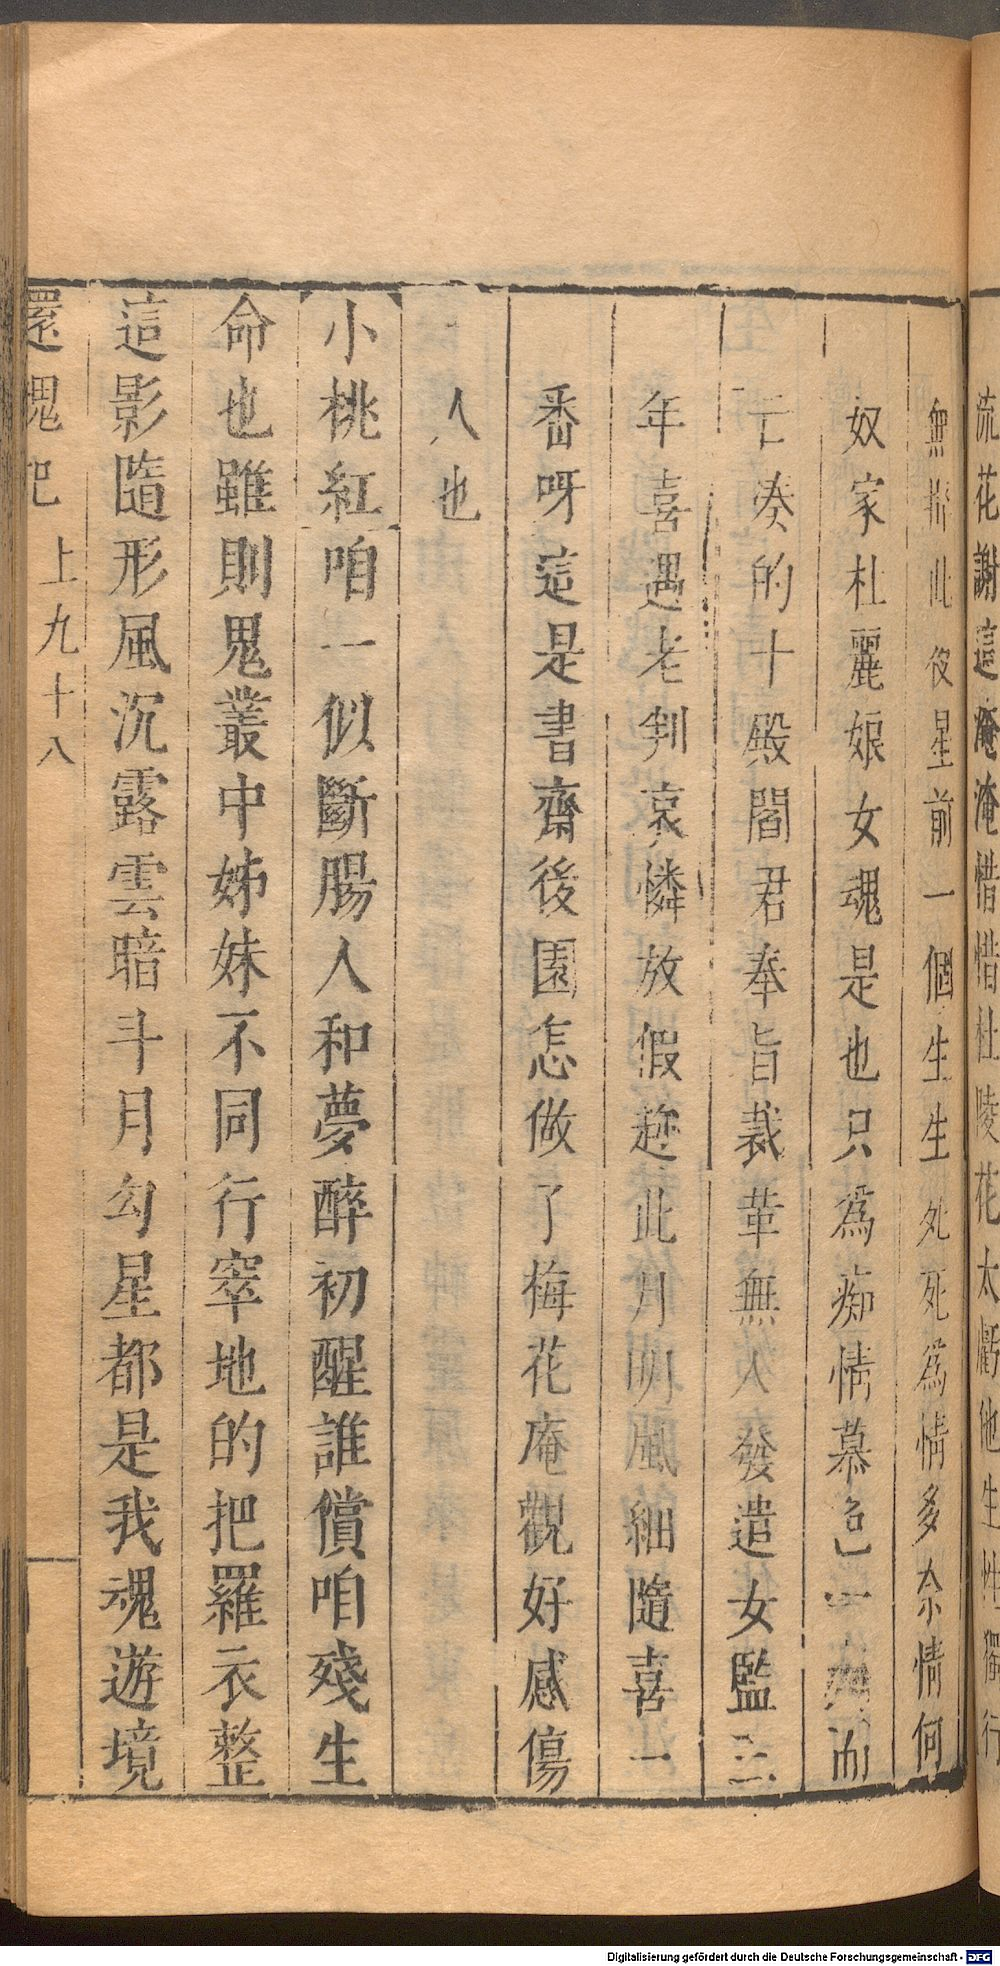 流花謝這淹淹惜惜杜陵花太虧他生性獨行
無那此夜星前一個生生死死爲情多奈情何
奴家杜麗娘女魂是也只爲痴情慕色一 而
亡凑的十殿閻君奉旨裁革無人發遣女監三
年喜遇老判哀憐放假趂此月明風細隨喜一
番呀這是書齋後園怎做了梅花庵觀好感傷
人也
小桃紅咱一似斷腸人和夢醉初醒誰償咱殘生
命也雖則鬼叢中姊妹不同行窣地的把羅衣整
這影隨形風沉露雲暗斗月勾星都是我魂遊境
還魂記 上九十八
Digitalisierung gefördert durch die Deutsche Forschungsgemeinschaft - DFG